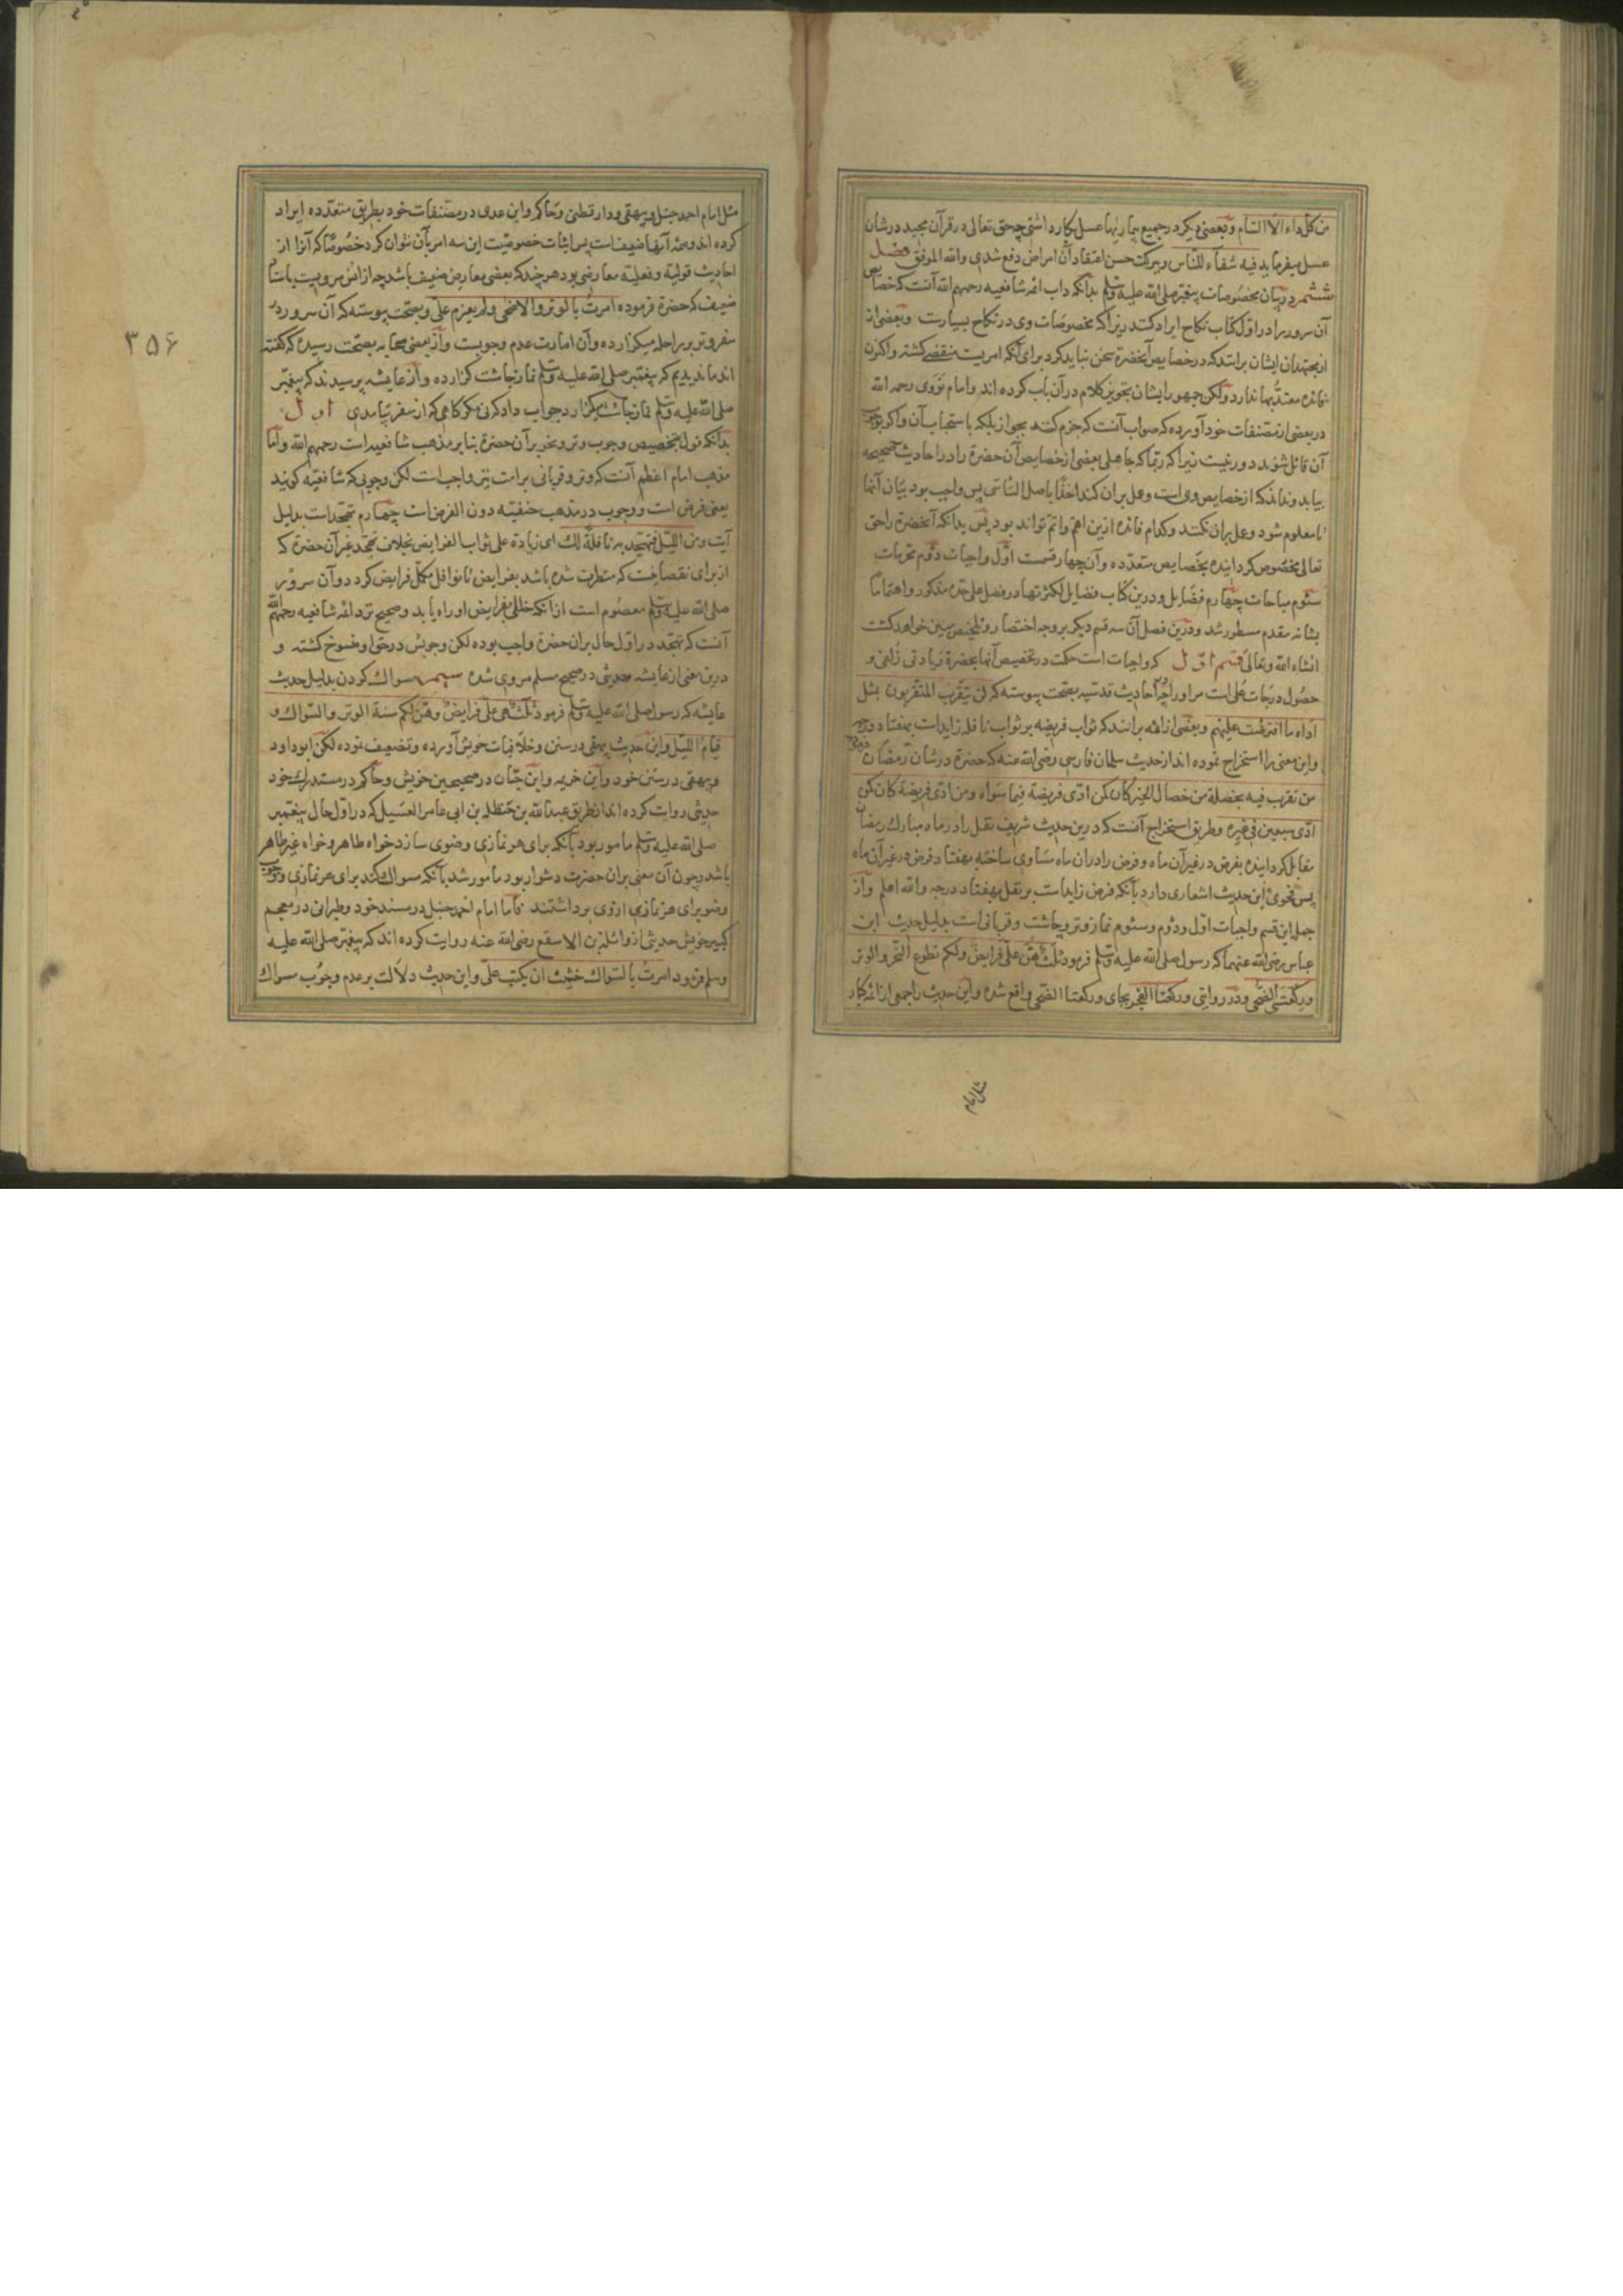 من کل داء الا السام وبعضی دیکر در جمیع بیماریها عسل بکار داشتی چه حق تعالی در قرآن مجید در شان
عسل میفرماید فیه شفاء للناس وببرکت حسن اعتقاد آن امراض دفع شدی والله الموفق فصل
ششم در بیان مخصوصات پیغمبر صلی الله علیه وسلم بدانکه داب ائمه شافعیه رحمهم الله آنست که خصایص
آن سرور را در اول کتاب نکاح ایراد کنند زیرا که مخصوصات وی در نکاح بسیارست وبعضی از
از مجتهدان ایشان برانند که در خصایص آنحضرة سخن نباید کرد برای آنکه امریست منقضی کشته واکنون
فائده معتد بها ندارد ولکن جمهور ایشان تجویز کلام در آن باب کرده اند وامام نووی رحمه الله
در بعضی از مصنفات خود آورده که صواب آنست که جزم کنند بجواز بلکه باستحباب آن واکر بوجوب
آن قائل شوند دور نیست زیرا که ربما که جاهلی بعضی از خصایص آن حضرة را در احادیث صحیحه
بیابد ونداند که از خصایص وی است وعمل بران کند اخذا باصل التاسی پس واجب بود بیان آنها
تا معلوم شود وعمل بران نکنند وکدام فائده ازین اهم واتم تواند بود پس بدانکه آنحضرة را حق
تعالی مخصوص کردانیده بخصایص متعدده وآن چهار قسمت اول واجبات دوم محرمات
سئوم مباحات چهارم فضایل ودرین کتاب فضایل لکثرتها در فصل علی حده مذکور واهتماما
بشانه مقدم مسطور شد ودرین فصل آن سه قسم دیکر بر وجه اختصار وتلخیص مبین خواهد کشت
انشاء الله وتعالی قسم اول که واجبات است حکمت در تخصیص آنها بحضرة زیادتی زلفی و
حصول درجات علی است مر او را چه احادیث قدسیه بصحت پیوسته که لن یتقرب المتقربون بمثل
اداء ما افترضت علیهم وبعضی از ائمه برانند که ثواب فریضه بر ثواب نافله زایداست بهفتاد درجه
واین معنی را استخراج نموده اند از حدیث سلمان فارسی رضی الله عنه که حضرة در شان رمضان فرموده
من تقرب فیه بخصلة من خصال الخیر کان کمن ادی فریضة فیما سواه ومن ادی فریضة کان کمن
ادی سبعین فی غیره وطریق استخراج آنست که درین حدیث شریف نفل را در ماه مبارک رمضان
مقابل کردانیده بفرض در غیر آن ماه وفرض را در ان ماه مساوی ساخته بهفتاد فرض در غیر آن ماه
پس فحوی این حدیث اشعاری دارد بآنکه فرض زایداست بر نفل بهفتاد درجه والله اعلم واز
جمله این قسم واجبات اول ودوم وسئوم نماز وتر وچاشت وقربانی است بدلیل حدیث ابن
عباس رضی الله عنهما که رسول صلی الله علیه وسلم فرمود ثلث هن علی فرایض ولکم تطوع النحر والوتر
ورکعتی الضحی ودر روایتی ورکعتا الفجر بجای ورکعتا الضحی واقع شده واین حدیث را جمعی از ائمه کبار
مثل امام
مثل امام احمد حنبل وبیهقی ودارقطنی وحاکم وابن عدی در مصنفات خود بطریق متعدده ایراد
کرده اند وهمه آنها ضعیف است پس اثبات خصوصیت این سه امر بآن نتوان کرد خصوصا که آنرا از
احادیث قولیه وفعلیه معارضی بود هرچند که بعضی معارض ضعیف باشد چه از انس مرویست باسناد
ضعیف که حضرة فرموده امرت بالوتر والاضحی ولم یعزم علی وبصحت پیوسته که آن سرور در
سفر وتر بر راحله میکزارده وآن امارت عدم وجوبست واز بعضی صحابه بصحت رسیده که کفته
اند ما ندیدیم که پیغمبر صلی الله علیه وسلم نماز چاشت کزارده واز عایشه پرسیدند که پیغمبر
صلی الله علیه وسلم نماز چاشت میکزارد جواب داد که نی مکر کاهی که از سفر بیامدی اول
بدانکه قول بتخصیص وجوب وتر ونحر بر آن حضرة بنا بر مذهب شافعیه است رحمهم الله واما
مذهب امام اعظم آنست که وتر وقربانی بر امت نیز واجب است لکن وجوبی که شافعیه کویند
یعنی فرض است ووجوب در مذهب حنفیه دون الفرض است چهارم تهجد است بدلیل
آیت ومن اللیل فتهجد به نافلة لک ای زیادة علی ثواب الفرایض بخلاف تهجد غیر آن حضرة که
از برای نقصانیست که متطرق شده باشد بفرایض تا نوافل مکمل فرایض کردد وآن سرور
صلی الله علیه وسلم معصوم است از انکه خللی بفرایض او راه یابد وصحیح نزد ائمه شافعیه رحمهم الله
آنست که تهجد در اول حال بران حضرة واجب بوده لکن وجوبش در حق او منسوخ کشته و
درین معنی از عایشه حدیثی در صحیح مسلم مروی شده پنجم سواک کردن بدلیل حدیث
عایشه که رسول صلی الله علیه وسلم فرمود ثلث هی علی فرایض وهن لکم سنة الوتر والسواک و
قیام اللیل واین حدیث بیهقی در سنن وخلافیات خویش آورده وتضعیف نموده لکن ابو داود
وبیهقی در سنن خود وابن خزیمه وابن حبان در صحیحین خویش وحاکم در مستدرک خود
حدیثی روایت کرده اند از طریق عبدالله بن حنظلة بن ابی عامر الغسیل که در اول حال پیغمبر
صلی الله علیه وسلم مامور بود بآنکه برای هر نمازی وضوی سازد خواه طاهر وخواه غیر طاهر
باشد وچون آن معنی بران حضرت دشوار بود مامور شد بآنکه مسواک کند برای هر نمازی ووجوب
وضو برای هر نمازی از وی برداشتند فاما امام احمد حنبل در مسند خود وطبرانی در معجم
کبیر خویش حدیثی از واثلة بن الاسقع رضی الله عنه روایت کرده اند که پیغمبر صلی الله علیه
وسلم فرمود امرت بالسواک خشیت ان یکتب علی واین حدیث دلالت بر عدم وجوب مسواک
۳۵۶